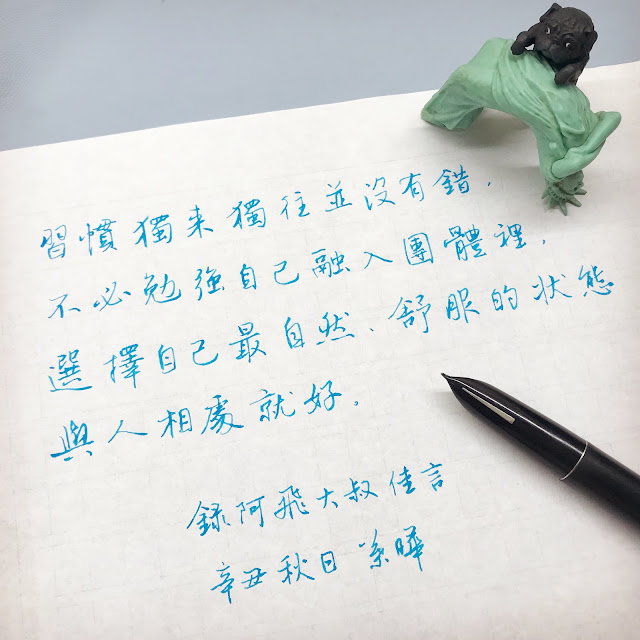 習慣獨来獨往並沒有錯，
不必勉強自己融入團體裡，
選擇自己最自然、舒服的状態
與人相處就好。
錄阿飛大叔佳言
辛丑秋日 曄